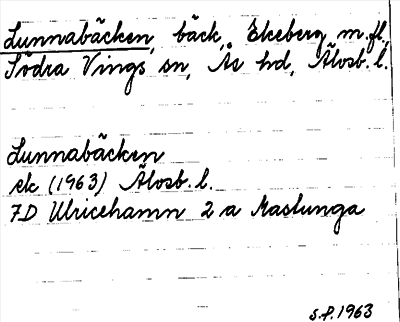 Lunnabäcken, bäck, Ekeberg m.fl,
Södra Vings sn, Ås hd, Älvsb. l.
Lunnabäcken
ek (1963) Älvsb. l.
7D Ulricehamn 2 a Maslunga
S.P. 1963